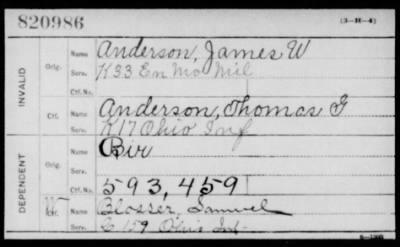 820986
(3-H-4)
INVALID
Orig. Name Anderson, James W
Serv. K 33 En Mo Mil
Ctf. No.
Ctf. Name Anderson, Thomas G
Serv. K 17 Ohio Inf
DEPENDENT
Orig. Name Bir
Serv.
Ctf. No. 593,459
Ctf. Name Blosser, Samuel
Serv. C 159 Ohio Inf